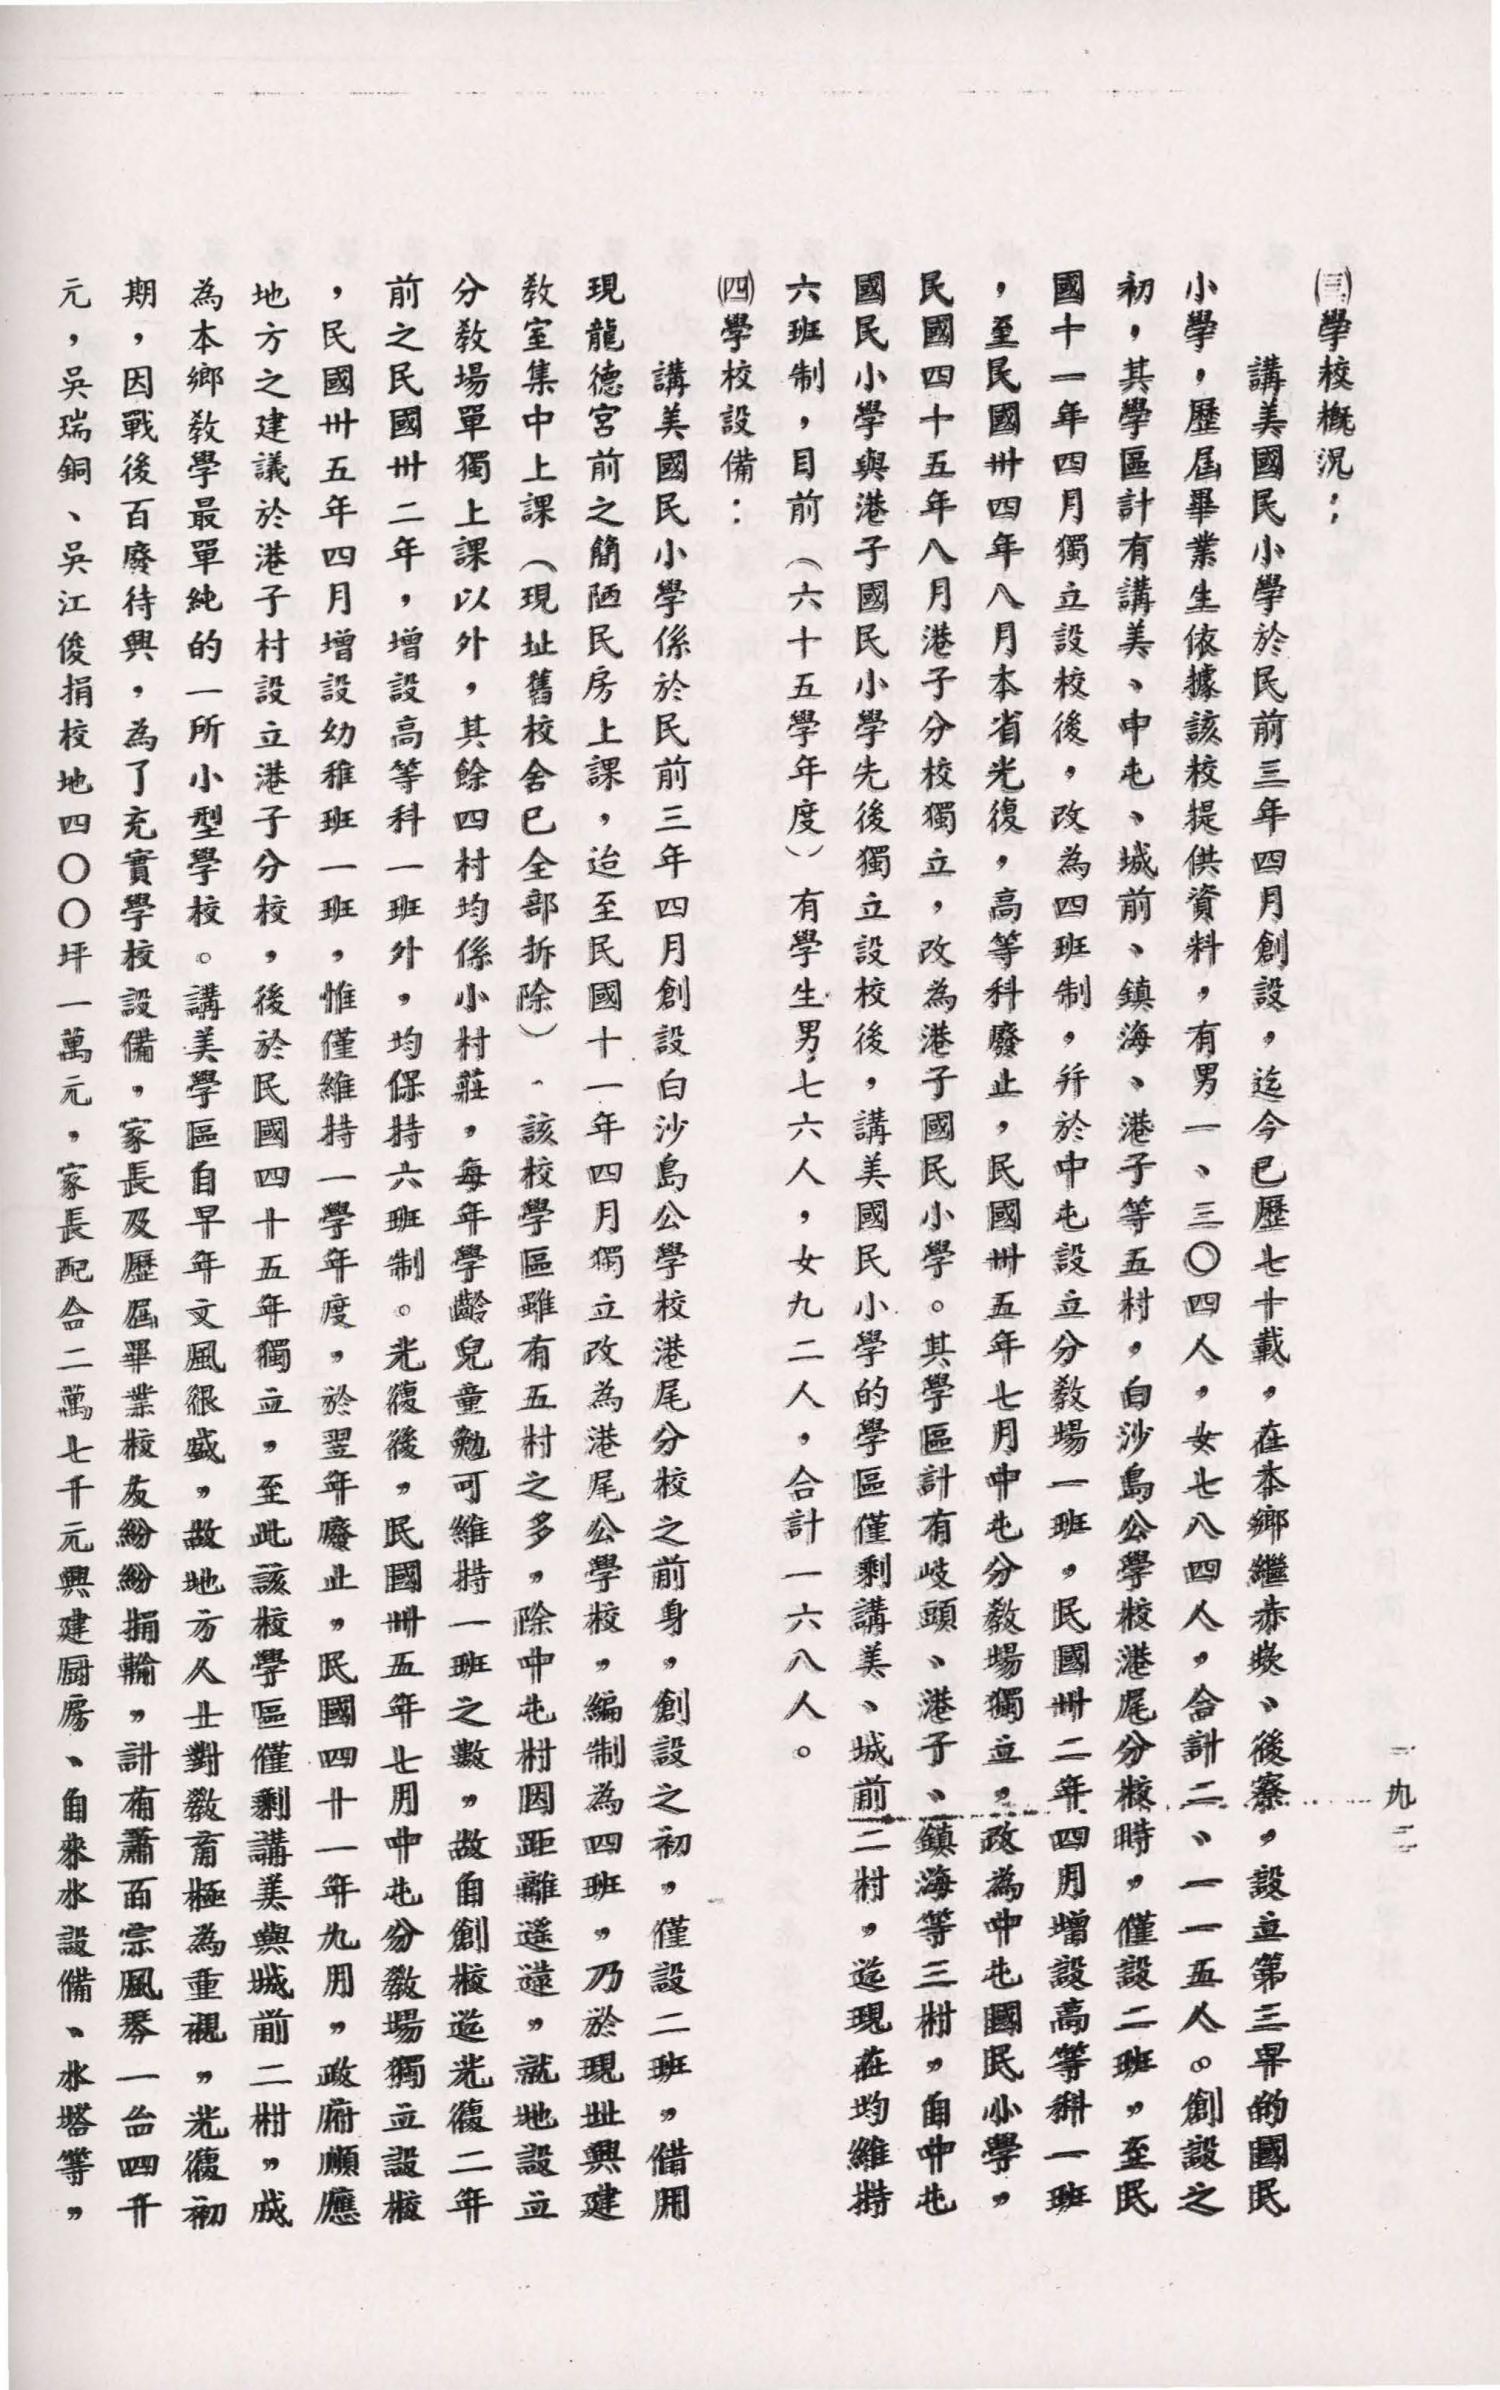 ㈢學校概況：
講美國民小學於民前三年四月創設，迄今已歷七十載，在本鄉繼赤崁、後寮，設立第三早的國民
小學，歷屆畢業生依據該校提供資料，有男一、三〇四人，女七八四人，合計二、一一五人。創設之
初，其學區計有講美、中屯、城前、鎮海、港子等五村，白沙島公學校港尾分校時，僅設二班，至民
國十一年四月獨立設校後，改為四班制，幷於中屯設立分教場一班，民國卅二年四月增設高等科一班
，至民國卅四年八月本省光復，高等科廢止，民國卅五年七月中屯分教場獨立，改為中屯國民小學，
民國四十五年八月港子分校獨立，改為港子國民小學。其學區計有岐頭、港子、鎮海等三村，自中屯
國民小學與港子國民小學先後獨立設校後，講美國民小學的學區僅剩講美、城前二村，迄現在均維持
六班制，目前（六十五學年度）有學生男七六人，女九二人，合計一六八人。
㈣學校設備：
講美國民小學係於民前三年四月創設白沙島公學校港尾分校之前身，創設之初，僅設二班，借用
現龍德宮前之簡陋民房上課，迨至民國十一年四月獨立改為港尾公學校，編制為四班，乃於現址興建
教室集中上課（現址舊校舍已全部拆除）．該校學區雖有五村之多，除中屯村因距離遙遠，就地設立
分教場單獨上課以外，其餘四村均係小村莊，每年學齡兒童勉可維持一班之數，故自創校迄光復二年
前之民國卅二年，增設高等科一班外，均保持六班制。光復後，民國卅五年七月中屯分教場獨立設校
，民國卅五年四月增設幼稚班一班，惟僅維持一學年度，於翌年廢止，民國四十一年九月，政府順應
地方之建議於港子村設立港子分校，後於民國四十五年獨立，至此該校學區僅剩講美與城前二村，成
為本鄉教學最單純的一所小型學校。講美學區自早年文風很盛，故地方人士對教育極為重視，光復初
期，因戰後百廢待興，為了充實學校設備，家長及歷屆畢業校友紛紛捐輸，計有蕭百宗風琴一台四千
元，吳瑞銅、吳江俊捐校地四〇〇坪一萬元，家長配合二萬七千元興建厨房、自來水設備、水塔等，
一九二